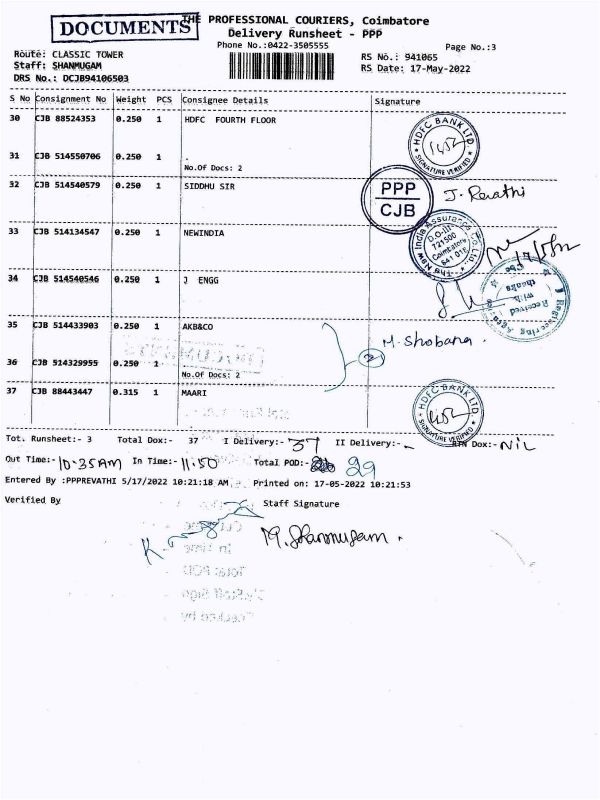 DOCUMENTS
THE PROFESSIONAL COURIERS, Coimbatore
Delivery Runsheet - PPP
Phone No.:0422-3505555
Page No.:3
Route: CLASSIC TOWER
RS No.: 941065
Staff: SHANMUGAM
RS Date: 17-May-2022
DRS No.: DCJB94106503
S No Consignment No Weight PCS Consignee Details Signature
30 CJB 88524353 0.250 1 HDFC FOURTH FLOOR
HDFC BANK LTD.
SIGNATURE VERIFIED
31 CJB 514550706 0.250 1 .
No.Of Docs: 2
32 CJB 514540579 0.250 1 SIDDHU SIR
PPP
CJB
J. Revathi
33 CJB 514134547 0.250 1 NEWINDIA
The New India Assurance Co. Ltd.
D.O-III
721500
Coimbatore
641 018
34 CJB 514540546 0.250 1 J ENGG
Received
with
thanks
35 CJB 514433903 0.250 1 AKB&CO
2 M. Shobana .
36 CJB 514329955 0.250 1
No.Of Docs: 2
37 CJB 88443447 0.315 1 MAARI
HDFC BANK LTD.
SIGNATURE VERIFIED
Tot. Runsheet:- 3 Total Dox:- 37 I Delivery:- 37 II Delivery:- - RTN Dox:- NIL
Out Time:- 10-35AM In Time:- 11:50 Total POD:- 29
Entered By :PPPREVATHI 5/17/2022 10:21:18 AM Printed on: 17-05-2022 10:21:53
Verified By Staff Signature
M. Shanmugam .